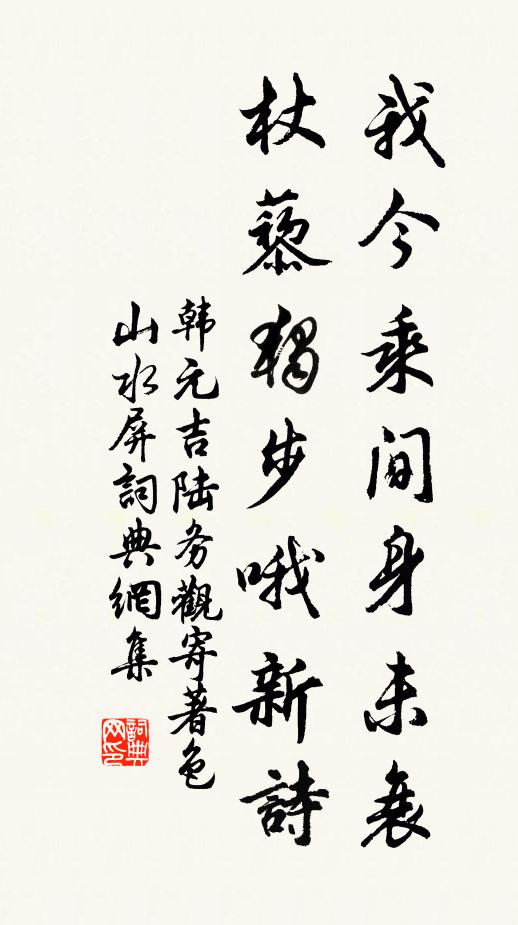 我今乘间身未衰
杖藜獨步哦新詩
韩元吉陆务觀寄著色
山水屏詞典網集
詞典
网印